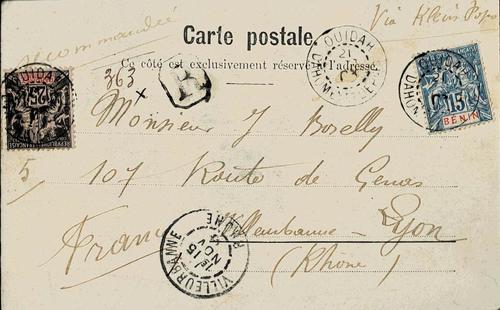 Recommandée
Via Klein Popo
Carte postale.
Ce côté est exclusivement réservé à l'adresse.
R
363
x
Monsieur J Borelly
107 Route de Genas
5
Villeurbanne Lyon
France
(Rhône)
OUIDAH
21
DAHOMEY
OUIDAH
DAHOMEY
15
BENIN
25
RÉPUBLIQUE FRANÇAISE
VILLEURBANNE
15
NOV
RHONE